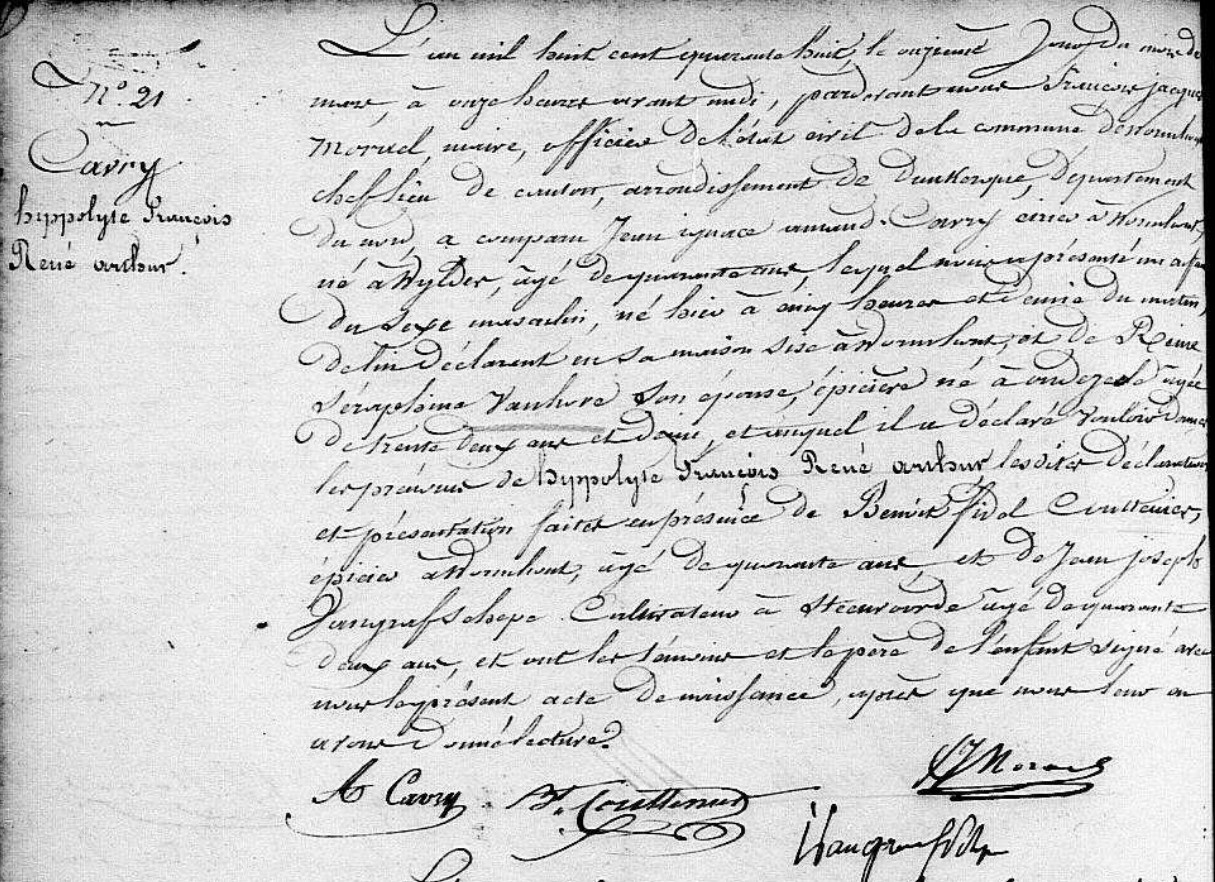 N.° 21
Cavry
hippolyte François
René arthur.
L'an mil huit cent quarante huit, le onzième jour du mois de
mars, à onze heures avant midi, pardevant nous François jacques
Morael, maire, officier de l'état civil de la commune de Wormhout
chef lieu de canton, arrondissement de Dunkerque, Département
du nord, a comparu Jean ignace amand Cavry cirier à Wormhout,
né à Wylder, âgé de quarante ans, lequel nous a présenté un enfant
du sexe masculin, né hier à cinq heures et demie du matin,
de lui déclarant en sa maison sise à Wormhout, et de Reine
Séraphine Vanhove son épouse, épicière né à oudezeele âgée
de trente deux ans et demi, et auquel il a déclaré vouloir donner
les prénoms de hippolyte François René arthur, lesdites déclaration
et présentation faites en présence de Benoit fidel Couttenier,
épicier à Wormhout, âgé de quarante ans, et de Jean joseph
Vangrafschepe Cultivateur à Steenvoorde âgé de quarante
deux ans, et ont les témoins et le père de l'enfant signé avec
nous le présent acte de naissance, après que nous leur en
avons donné lecture.
A Cavry B. Couttenier Morael
Vangrafschepe